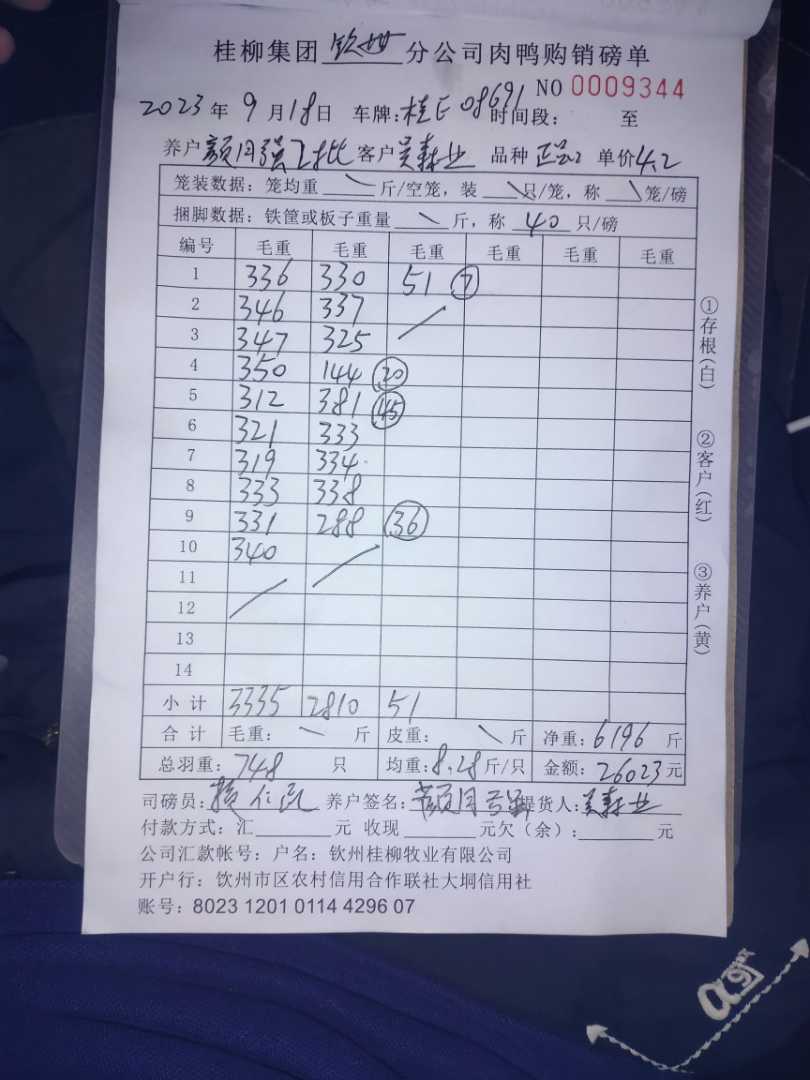 桂柳集团 钦州 分公司肉鸭购销磅单
NO 0009344
2023 年 9 月 18 日 车牌: 桂E08691 时间段: 至
养户 颜月强 上批 客户 吴森业 品种 单价 4.2
笼装数据: 笼均重 斤/空笼, 装 只/笼, 称 笼/磅
捆脚数据: 铁筐或板子重量 斤, 称 40 只/磅
编号 毛重 毛重 毛重 毛重 毛重 毛重
1 336 330 51 7
2 346 337
3 347 325
4 350 144 20
5 312 381 45
6 321 333
7 319 334
8 333 338
9 331 288 36
10 340
11
12
13
14
小计 3335 2810 51
合计 毛重: 斤 皮重: 斤 净重: 6196 斤
总羽重: 748 只 均重: 8.28 斤/只 金额: 26023 元
司磅员: 养户签名: 颜月强 提货人: 吴森业
付款方式: 汇 元 收现 元欠(余): 元
公司汇款帐号: 户名: 钦州桂柳牧业有限公司
开户行: 钦州市区农村信用合作联社大垌信用社
账号: 8023 1201 0114 4296 07
①存根(白)
②客户(红)
③养户(黄)